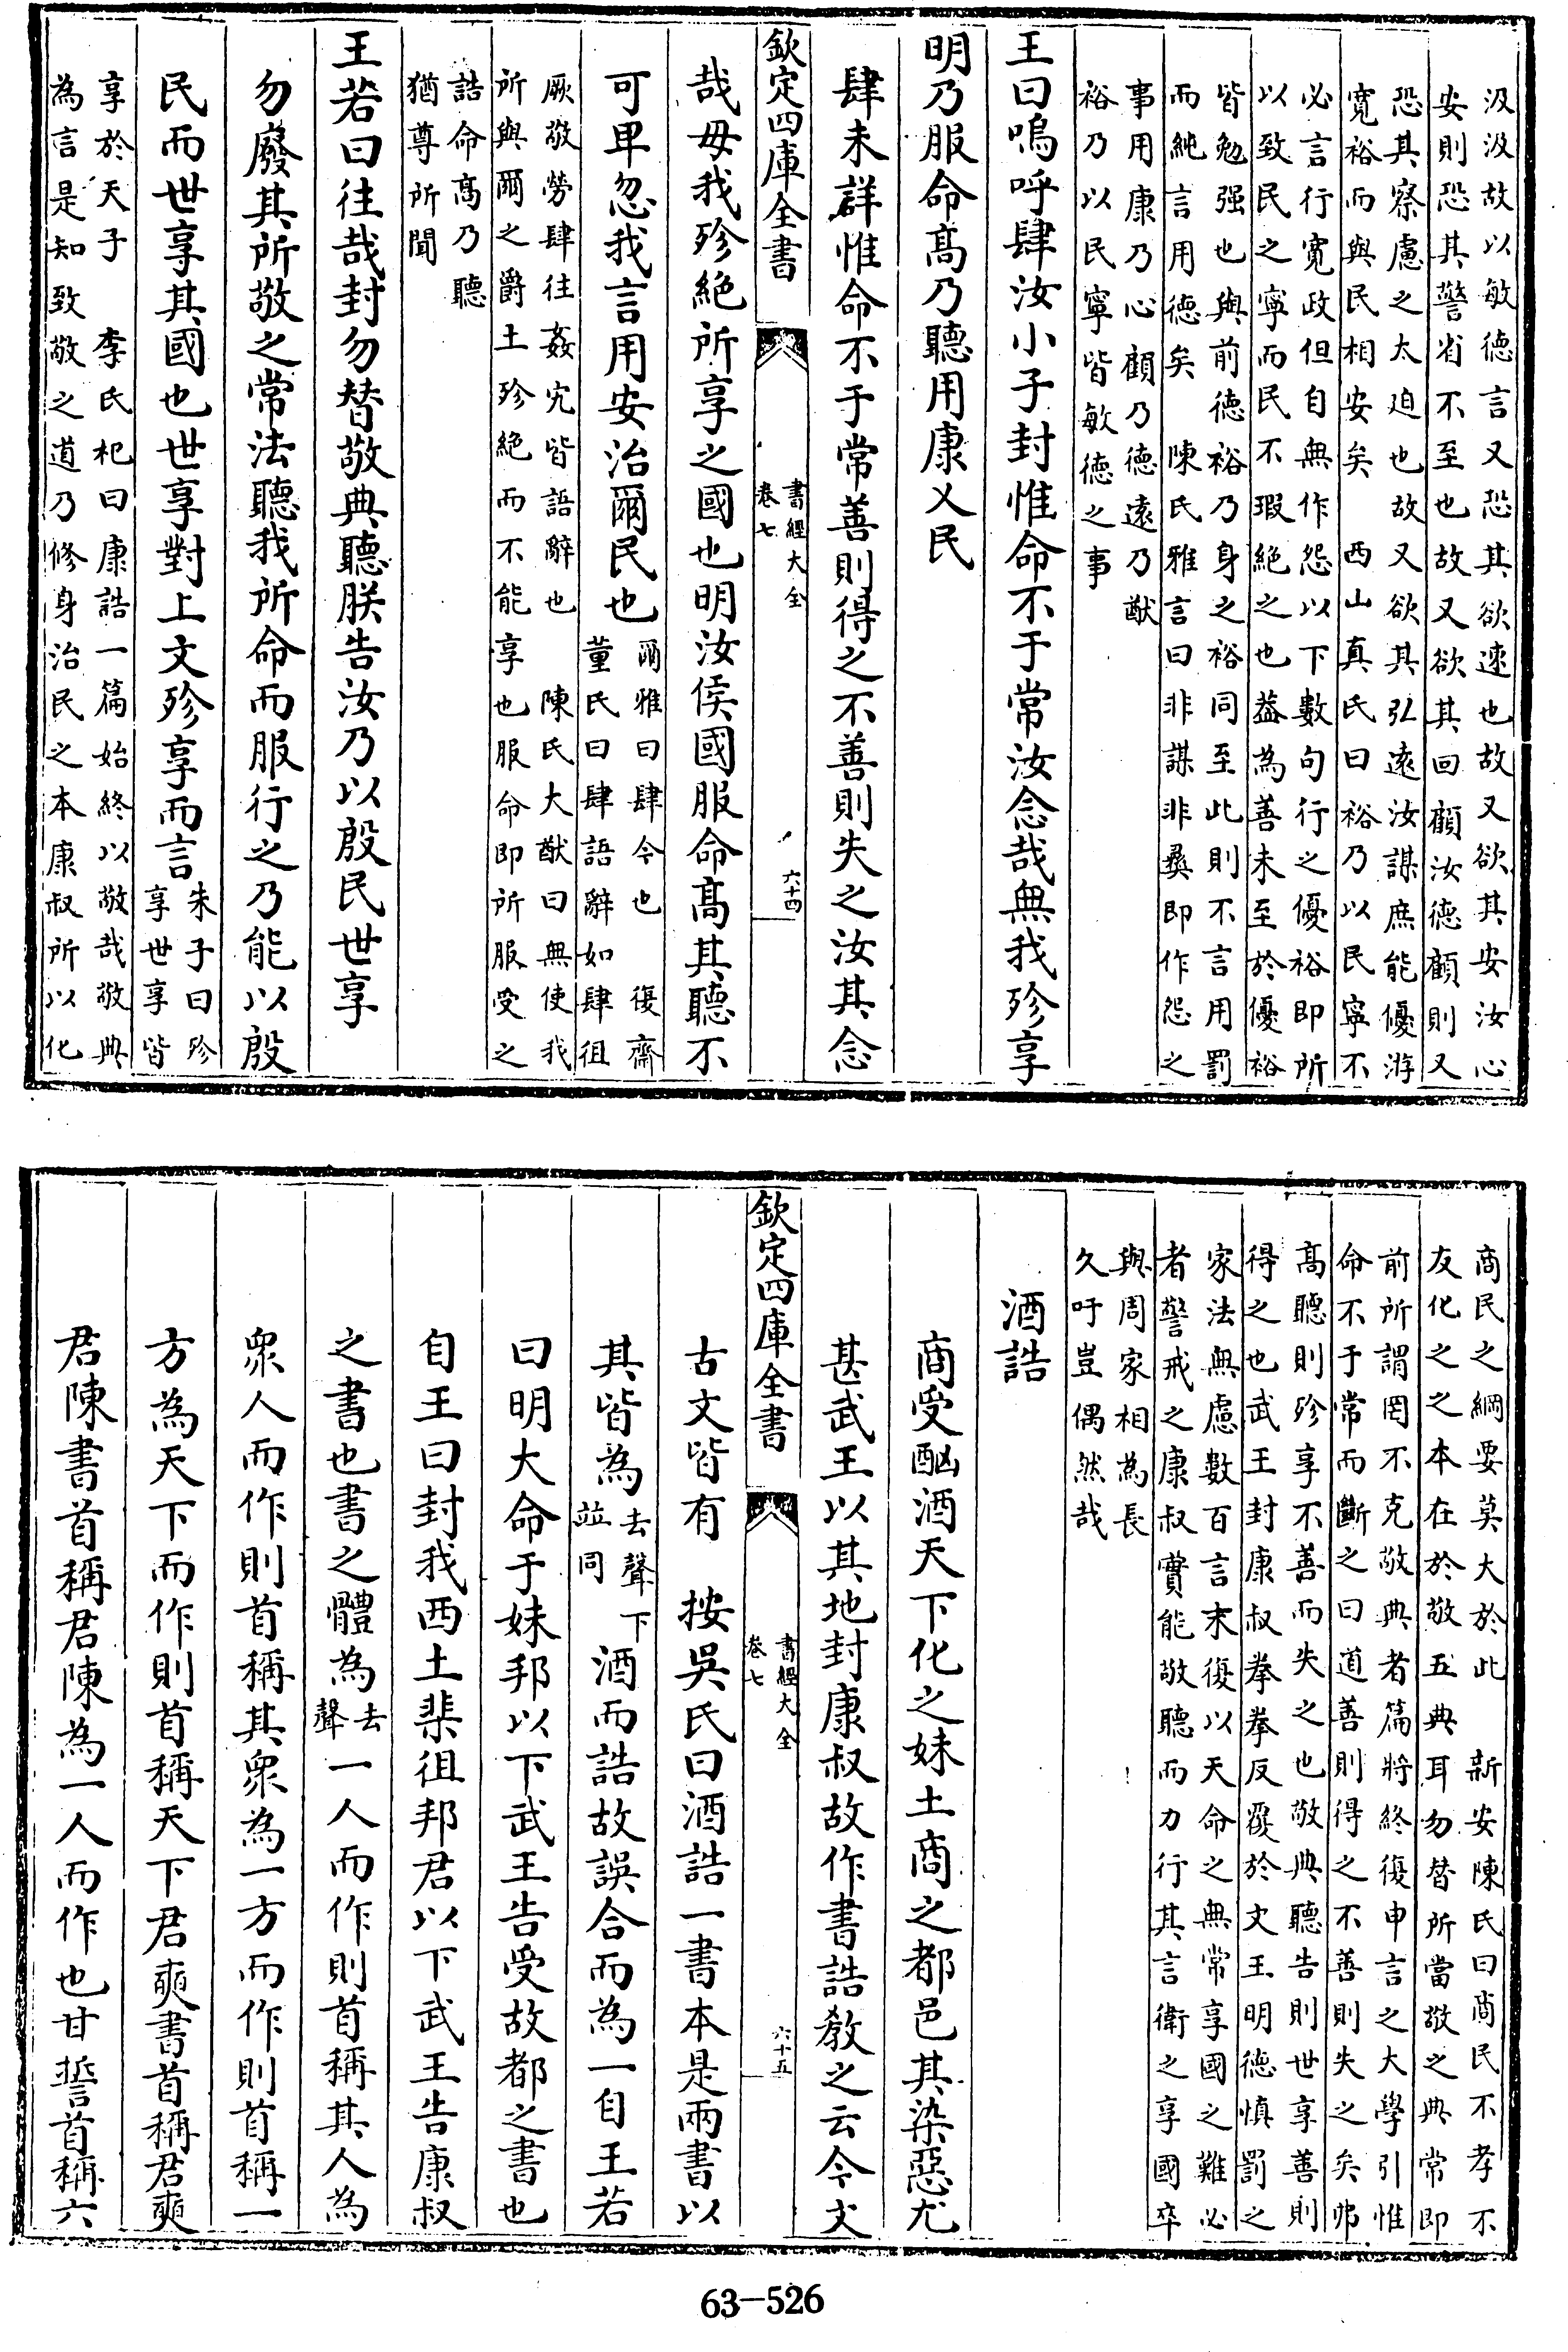 汲汲故以敏徳言又恐其欲速也故又欲其安汝心
安則恐其警省不至也故又欲其回顧汝徳顧則又
恐其察慮之太迫也故又欲其弘逺汝謀庶能優游
寛裕而與民相安矣　西山真氏曰裕乃以民寧不
必言行寛政但自無作怨以下數句行之優裕即所
以致民之寧而民不瑕絶之也葢為善未至於優裕
皆勉强也與前徳裕乃身之裕同至此則不言用罰
而純言用徳矣　陳氏雅言曰非謀非彜即作怨之
事用康乃心顧乃徳逺乃猷
裕乃以民寧皆敏徳之事
王曰嗚呼肆汝小子封惟命不于常汝念哉無我殄享
明乃服命髙乃聽用康乂民
肆未詳惟命不于常善則得之不善則失之汝其念
欽定四庫全書　書經大全
卷七　六十四
哉毋我殄絶所享之國也明汝侯國服命髙其聽不
可卑忽我言用安治爾民也
爾雅曰肆今也　復齋
董氏曰肆語辭如肆徂
厥敬勞肆往姦宄皆語辭也　陳氏大猷曰無使我
所與爾之爵土殄絶而不能享也服命即所服受之
誥命髙乃聽
猶尊所聞
王若曰往哉封勿替敬典聽朕告汝乃以殷民世享
勿廢其所敬之常法聽我所命而服行之乃能以殷
民而世享其國也世享對上文殄享而言
朱子曰殄
享世享皆
享於天子　李氏杞曰康誥一篇始終以敬哉敬典
為言是知致敬之道乃修身治民之本康叔所以化
商民之綱要莫大於此　新安陳氏曰商民不孝不
友化之之本在於敬五典耳勿替所當敬之典常即
前所謂罔不克敬典者篇將終復申言之大學引惟
命不于常而斷之曰道善則得之不善則失之矣弗
髙聽則殄享不善而失之也敬典聽告則世享善則
得之也武王封康叔拳拳反覆於文王明徳慎罰之
家法無慮數百言末復以天命之無常享國之難必
者警戒之康叔實能敬聽而力行其言衛之享國卒
與周家相為長
久吁豈偶然哉
酒誥
商受酗酒天下化之妹土商之都邑其染惡尤
甚武王以其地封康叔故作書誥教之云今文
欽定四庫全書　書經大全
卷七　六十五
古文皆有　按吳氏曰酒誥一書本是兩書以
其皆為
去聲下
並同
酒而誥故誤合而為一自王若
曰明大命于妹邦以下武王告受故都之書也
自王曰封我西土棐徂邦君以下武王告康叔
之書也書之體為
去
聲
一人而作則首稱其人為
衆人而作則首稱其衆為一方而作則首稱一
方為天下而作則首稱天下君奭書首稱君奭
君陳書首稱君陳為一人而作也甘誓首稱六
63-526